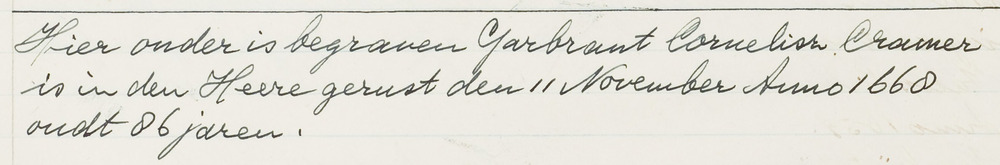 Hier onder is begraven Garbrant Cornelisz Cramer
is in den Heere gerust den 11 November Anno 1668
oudt 86 jaren.